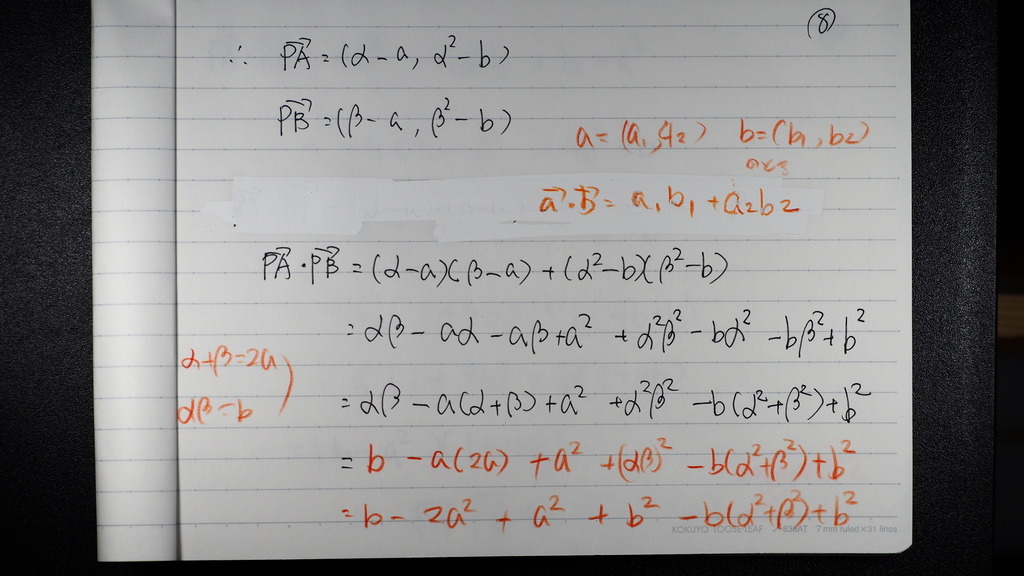 ⑧
∴ PA→ = (α-a, α²-b)
PB→ = (β-a, β²-b)
a = (a₁, a₂) b = (b₁, b₂)
a→・b→ = a₁b₁ + a₂b₂
PA→・PB→ = (α-a)(β-a) + (α²-b)(β²-b)
= αβ - aα - aβ + a² + α²β² - bα² - bβ² + b²
α+β=2a
αβ=b
= αβ - a(α+β) + a² + α²β² - b(α²+β²) + b²
= b - a(2a) + a² + (αβ)² - b(α²+β²) + b²
= b - 2a² + a² + b² - b(α²+β²) + b²
KOKUYO LOOSE-LEAF 836AT 7 mm ruled×31 lines